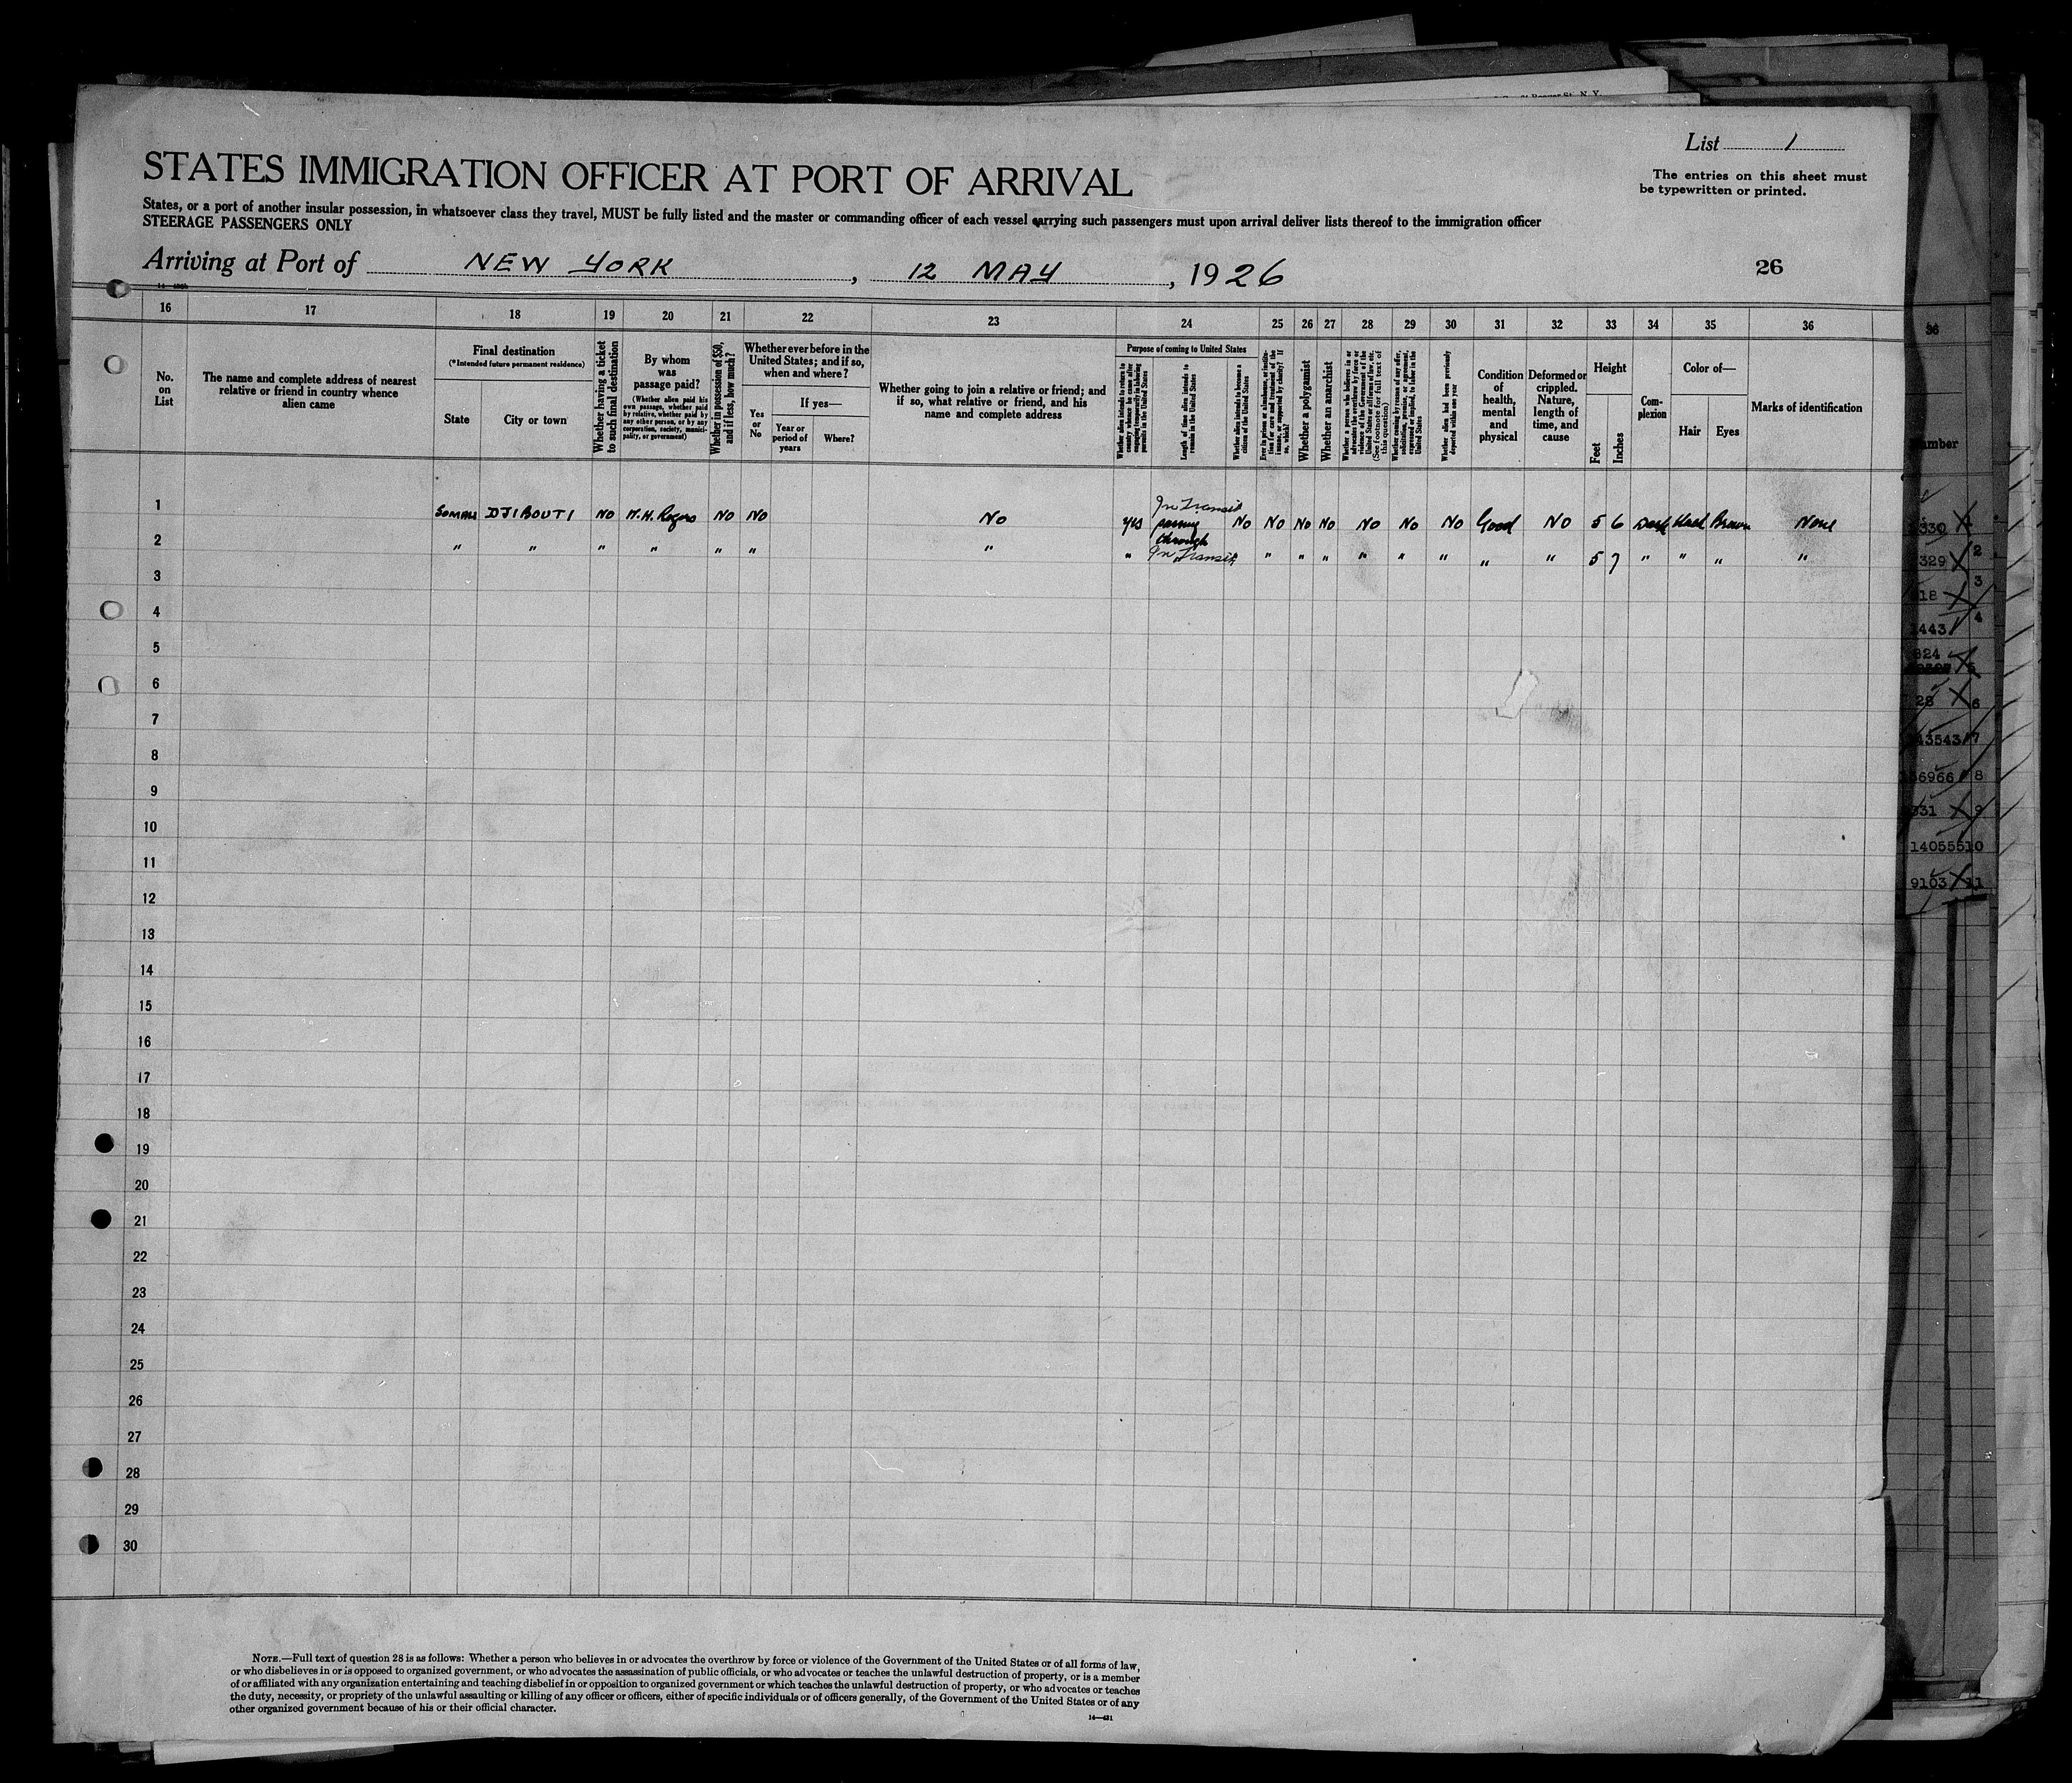 List 1
The entries on this sheet must
be typewritten or printed.
STATES IMMIGRATION OFFICER AT PORT OF ARRIVAL
States, or a port of another insular possession, in whatsoever class they travel, MUST be fully listed and the master or commanding officer of each vessel carrying such passengers must upon arrival deliver lists thereof to the immigration officer
STEERAGE PASSENGERS ONLY
Arriving at Port of NEW YORK, 12 MAY, 1926
26
16 17 18 19 20 21 22 23 24 25 26 27 28 29 30 31 32 33 34 35 36
No.
on
List
The name and complete address of nearest
relative or friend in country whence
alien came
Final destination
(*Intended future permanent residence)
State
City or town
Whether having a ticket
to such final destination
By whom
was
passage paid?
(Whether alien paid his
own passage, whether paid
by relative, whether paid by
any other person, or by any
corporation, society, munici-
pality, or government)
Whether in possession of $50,
and if less, how much?
Whether ever before in the
United States; and if so,
when and where?
Yes
or
No
If yes—
Year or
period of
years
Where?
Whether going to join a relative or friend; and
if so, what relative or friend, and his
name and complete address
Purpose of coming to United States
Whether alien intends to return to
country whence he came after
engaging temporarily in laboring
pursuits in the United States
Length of time alien intends to
remain in the United States
Whether alien intends to become a
citizen of the United States
Ever in prison or almshouse, or institu-
tion for care and treatment of the
insane, or supported by charity? If
so, which?
Whether a polygamist
Whether an anarchist
Whether a person who believes in or
advocates the overthrow by force or
violence of the Government of the
United States or all forms of law, etc.
(See footnote for full text of
this question)
Whether coming by reason of any offer,
solicitation, promise, or agreement,
expressed or implied, to labor in the
United States
Whether alien had been previously
deported within one year
Condition
of
health,
mental
and
physical
Deformed or
crippled.
Nature,
length of
time, and
cause
Height
Feet
Inches
Com-
plexion
Color of—
Hair
Eyes
Marks of identification
1 SOMALI DJIBOUTI NO W. H. Rogers NO NO No yes In Transit passing through No No No No No No No Good No 5 6 Dark Black Brown None
2 " " " " " " " " In Transit " " " " " " " " 5 7 " " " "
3
4
5
6
7
8
9
10
11
12
13
14
15
16
17
18
19
20
21
22
23
24
25
26
27
28
29
30
NOTE.—Full text of question 28 is as follows: Whether a person who believes in or advocates the overthrow by force or violence of the Government of the United States or of all forms of law,
or who disbelieves in or is opposed to organized government, or who advocates the assassination of public officials, or who advocates or teaches the unlawful destruction of property, or is a member
of or affiliated with any organization entertaining and teaching disbelief in or opposition to organized government or which teaches the unlawful destruction of property, or who advocates or teaches
the duty, necessity, or propriety of the unlawful assaulting or killing of any officer or officers, either of specific individuals or of officers generally, of the Government of the United States or of any
other organized government because of his or their official character.
36
329 2
3
1443 4
824
28 6
43543 7
6966 8
331 9
140555 10
9103 11